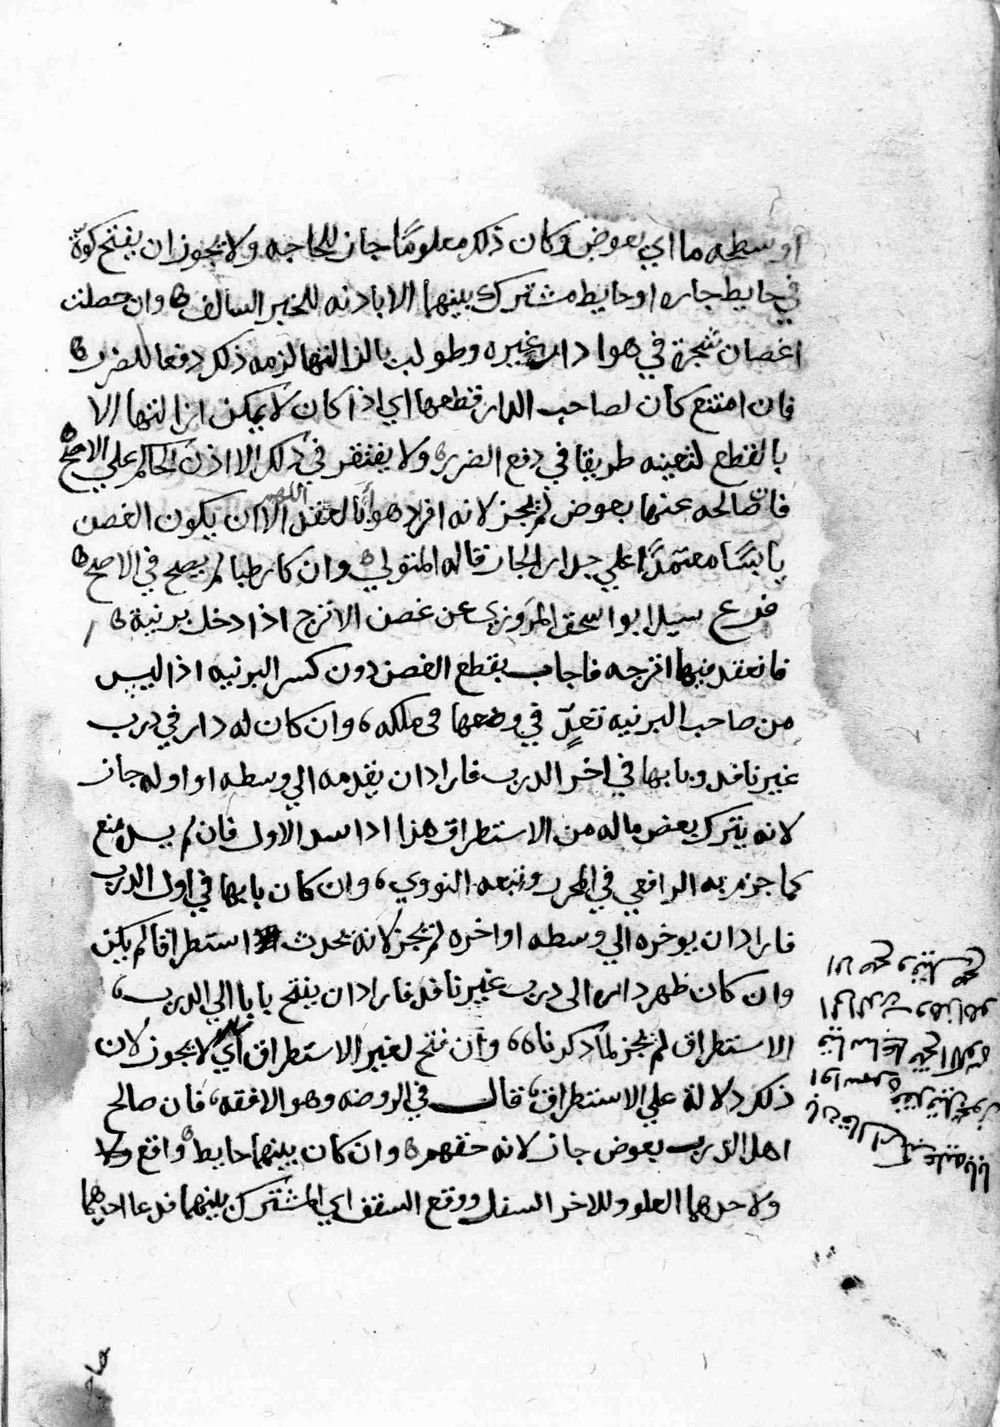 او سطحه ما اي بعوض وكان ذلك معلومًا جاز للحاجه ولا يجوز ان يفتح كوة
في حايط جاره او حايط مشترك بينهما الا باذنه للخبر السالف وان حصلت
اغصان شجرة في هوا دار غيره وطولب بازالتها لزمه ذلك دفعا للضرر
فان امتنع كان لصاحب الدار قطعها اي اذا كان لا يمكن ازالتها الا
بالقطع لتعينه طريقا في دفع الضرر ولا يفتقر في ذلك الا اذن الحاكم علي الاصح
فان صالحه عنها بعوض لم يجز لانه افرد هوا بالعقد اللهم الا ان يكون الغصن
يابسًا معتمدًا علي جدار الجار قاله المتولي وان كان رطبا لم يصح في الاصح
فرع سيل ابو اسحق المروزي عن غصن الاترج اذا دخل برنية
فانعقد فيها اترجه فاجاب بقطع الغصن دون كسر البرنيه اذ اليس
من صاحب البرنيه تعدٍّ في وضعها في ملكه، وان كان له دار في درب
غير نافد وبابها في اخر الدرب فاراد ان يقدمه الي وسطه او اوله جاز
لانه يترك بعض ماله من الاستطراق هذا اذا سد الاول فان لم يسد منع
كما جزم به الرافعي في المحرر وتبعه النووي، وان كان بابها في اول الدرب
فاراد ان يوخره الي وسطه او اخره لم يجز لانه يحدث استطراقا لم يكن
وان كان ظهر داره الى درب غير نافد فاراد ان يفتح بابا الي الدرب،
الاستطراق لم يجز لما ذكرناه، وان فتح لغير الاستطراق اي لا يجوز لان
ذلك دلالة علي الاستطراق، قال في الروضه وهو الافقه، فان صالح
اهل الدرب بعوض جاز لانه حقهم وان كان بينهما حايط واقع
ولاحدهما العلو وللاخر السفل ووقع السقف اي المشترك بينهما فدعا احدهما